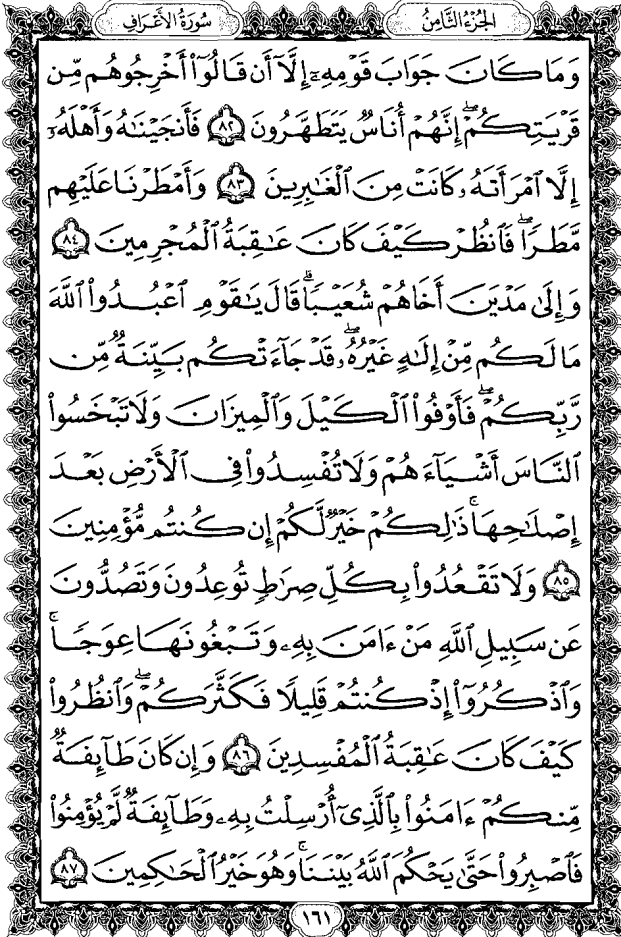 الجُزْءُ الثَّامِنُ
سُورَةُ الأَعْرَافِ
وَمَا كَانَ جَوَابَ قَوْمِهِۦٓ إِلَّآ أَن قَالُوٓا۟ أَخْرِجُوهُم مِّن
قَرْيَتِكُمْ ۖ إِنَّهُمْ أُنَاسٌ يَتَطَهَّرُونَ ٨٢ فَأَنجَيْنَٰهُ وَأَهْلَهُۥٓ
إِلَّا ٱمْرَأَتَهُۥ كَانَتْ مِنَ ٱلْغَٰبِرِينَ ٨٣ وَأَمْطَرْنَا عَلَيْهِم
مَّطَرًا ۖ فَٱنظُرْ كَيْفَ كَانَ عَٰقِبَةُ ٱلْمُجْرِمِينَ ٨٤
وَإِلَىٰ مَدْيَنَ أَخَاهُمْ شُعَيْبًا ۗ قَالَ يَٰقَوْمِ ٱعْبُدُوا۟ ٱللَّهَ
مَا لَكُم مِّنْ إِلَٰهٍ غَيْرُهُۥ ۖ قَدْ جَآءَتْكُم بَيِّنَةٌ مِّن
رَّبِّكُمْ ۖ فَأَوْفُوا۟ ٱلْكَيْلَ وَٱلْمِيزَانَ وَلَا تَبْخَسُوا۟
ٱلنَّاسَ أَشْيَآءَهُمْ وَلَا تُفْسِدُوا۟ فِى ٱلْأَرْضِ بَعْدَ
إِصْلَٰحِهَا ۚ ذَٰلِكُمْ خَيْرٌ لَّكُمْ إِن كُنتُم مُّؤْمِنِينَ
٨٥ وَلَا تَقْعُدُوا۟ بِكُلِّ صِرَٰطٍ تُوعِدُونَ وَتَصُدُّونَ
عَن سَبِيلِ ٱللَّهِ مَنْ ءَامَنَ بِهِۦ وَتَبْغُونَهَا عِوَجًا ۚ
وَٱذْكُرُوٓا۟ إِذْ كُنتُمْ قَلِيلًا فَكَثَّرَكُمْ ۖ وَٱنظُرُوا۟
كَيْفَ كَانَ عَٰقِبَةُ ٱلْمُفْسِدِينَ ٨٦ وَإِن كَانَ طَآئِفَةٌ
مِّنكُمْ ءَامَنُوا۟ بِٱلَّذِىٓ أُرْسِلْتُ بِهِۦ وَطَآئِفَةٌ لَّمْ يُؤْمِنُوا۟
فَٱصْبِرُوا۟ حَتَّىٰ يَحْكُمَ ٱللَّهُ بَيْنَنَا ۚ وَهُوَ خَيْرُ ٱلْحَٰكِمِينَ ٨٧
١٦١